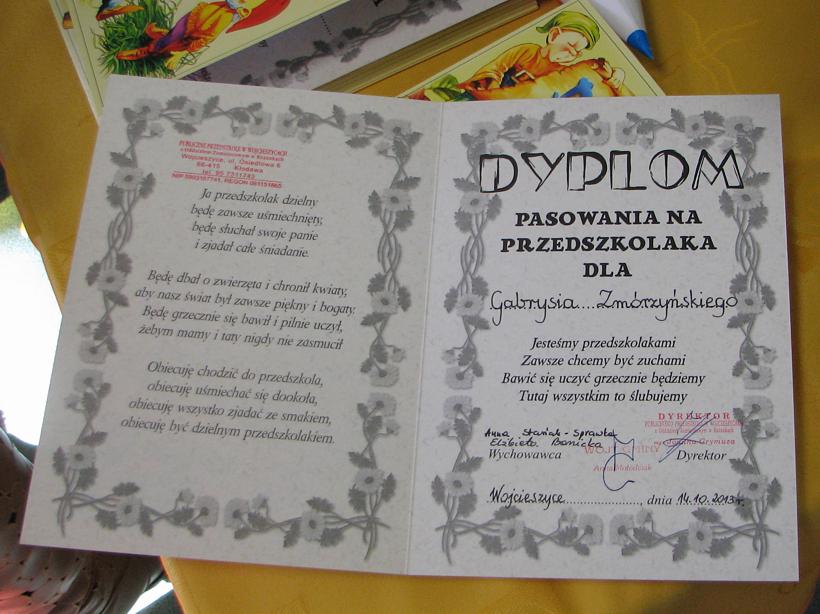 PUBLICZNE PRZEDSZKOLE W WOJCIESZYCACH
z Oddziałem Zamiejscowym w Różankach
Wojcieszyce, ul. Osiedlowa 6
66-415 Kłodawa
tel. 95 7311743
Ja przedszkolak dzielny
będę zawsze uśmiechnięty,
będę słuchał swoje panie
i zjadał całe śniadanie.
Będę dbał o zwierzęta i chronił kwiaty,
aby nasz świat był zawsze piękny i bogaty.
Będę grzecznie się bawił i pilnie uczył,
żebym mamy i taty nigdy nie zasmucił
Obiecuję chodzić do przedszkola,
obiecuję uśmiechać się dookoła,
obiecuję wszystko zjadać ze smakiem,
obiecuję być dzielnym przedszkolakiem.
DYPLOM
PASOWANIA NA
PRZEDSZKOLAKA
DLA
Gabrysia Zmórzyńskiego
Jesteśmy przedszkolakami
Zawsze chcemy być zuchami
Bawić się uczyć grzecznie będziemy
Tutaj wszystkim to ślubujemy
DYREKTOR
Anna Staniak-Sprawka
Elżbieta Barnicka
Wychowawca
WÓJT GMINY
Dyrektor
Anna Mołodciak
Wojcieszyce, dnia 14.10.2013r.